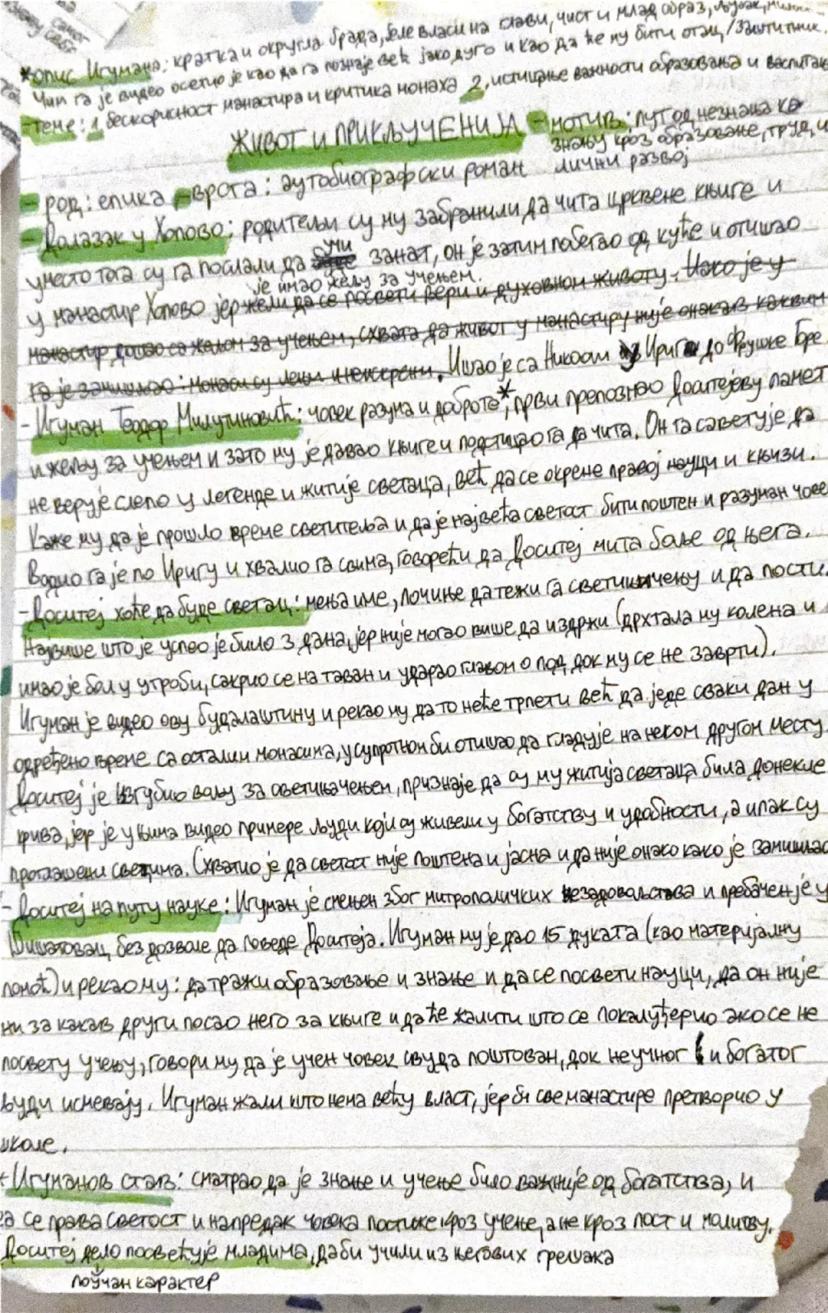 *опис Игумана: кратка и округла брада, беле власи на глави, чист и млад образ,
Чим га је видео осетио је као да га познаје већ јако дуго и као да ће му бити отац/заштитник.
-теме: 1. бескорисност манастира и критика монаха 2. истицање важности образовања и васпитања
ЖИВОТ И ПРИКЉУЧЕНИЈА - мотив: пут од незнања ка
знању кроз образовање, труд и
лични развој
- род: епика - врста: аутобиографски роман
- Долазак у Хопово: родитељи су му забранили да чита црквене књиге и
уместо тога су га послали да учи занат, он је затим побегао од куће и отишао
је имао жељу за учењем.
у манастир Хопово јер жели да се посвети вери и духовном животу. Иако је у
манастир дошао са жељом за учењем, схвата да живот у манастиру није онакав каквим
га је замишљао: монаси су лењи и неискрени. Ишао је са Николом у Ириг до Фрушке Горе
- Игуман Теодор Милутиновић: човек разума и доброте*, први препознао Доситејеву памет
и жељу за учењем и зато му је давао књиге и подстицао га да чита. Он га саветује да
не верује слепо у легенде и житије светаца, већ да се окрене правој науци и књизи.
Каже му да је прошло време светитеља и да је највећа светост бити поштен и разуман човек
Водио га је по Иригу и хвалио га свима, говорећи да Доситеј чита боље од њега.
- Доситеј хоће да буде светац: мења име, почиње да тежи га светишчењу и да пости.
Највише што је успео је било 3 дана, јер није могао више да издржи (дрхтала му колена и
имао је бол у утроби, сакрио се на таван и ударао главом о под док му се не заврти).
Игуман је видео ову будалаштину и рекао му да то неће трпети већ да једе сваки дан у
одређено време са осталим монасима, у супротном би отишао да гладује на неком другом месту.
Доситеј је изгубио вољу за светишчењем, признаје да су му житија светаца била донекле
крива, јер је у њима видео примере људи који су живели у богатству и удобности, а ипак су
проглашени свецима. Схватио је да светост није поштена и јасна и да није онако како је замишљао
- Доситеј на путу науке: Игуман је смењен због митрополичких незадовољства и пребачен је у
Шишатовац без дозволе да поведе Доситеја. Игуман му је дао 15 дуката (као материјалну
помоћ) и рекао му: да тражи образовање и знање и да се посвети науци, да он није
ни за какав други посао него за књиге и да ће жалити што се покалуђерио ако се не
посвету учењу, говори му да је учен човек свуда поштован, док неучног и богатог
људи исмевају. Игуман жали што нема већу власт, јер би све манастире претворио у
школе.
- Игуманов став: сматрао да је знање и учење било важније од богатства, и
да се права светост и напредак човека постиже кроз учење, а не кроз пост и молитву.
Доситеј дело посвећује младима, да би учили из његових грешака
поучан карактер